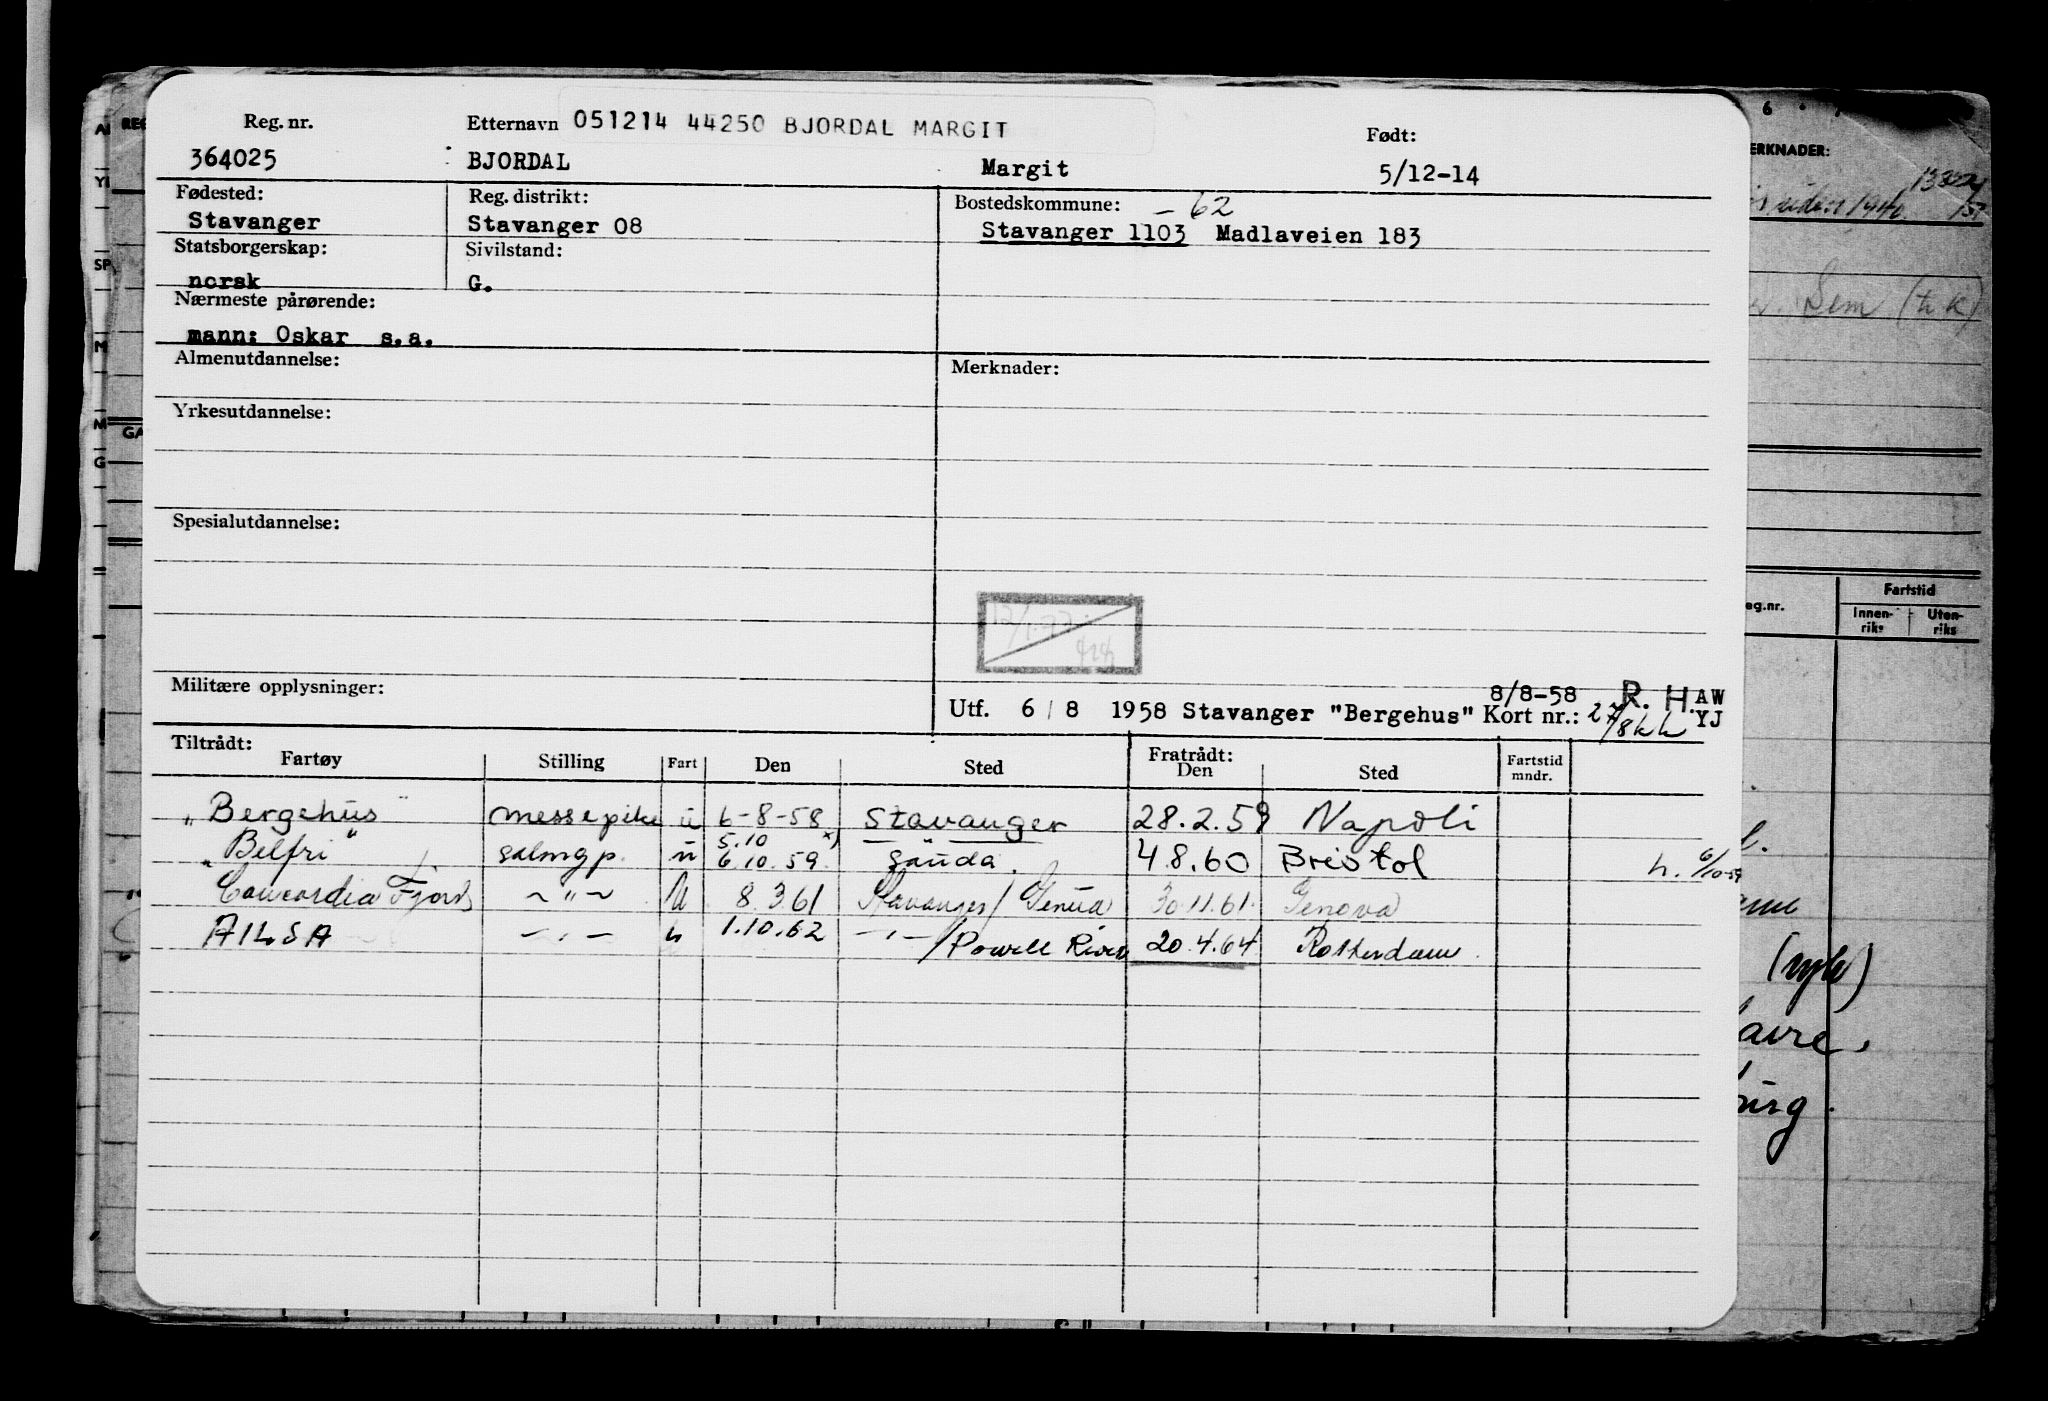 Reg. nr. Etternavn 051214 44250 BJORDAL MARGIT Født:
364025 BJORDAL Margit 5/12-14
Fødested: Reg. distrikt: Bostedskommune: - 62
Stavanger Stavanger 08 Stavanger 1103 Madlaveien 183
Statsborgerskap: Sivilstand:
norsk G.
Nærmeste pårørende:
mann: Oskar s.a.
Almenutdannelse: Merknader:
Yrkesutdannelse:
Spesialutdannelse:
Militære opplysninger:
8/8-58 R. H. AW
Utf. 6/8 1958 Stavanger "Bergehus" Kort nr.: YJ
Tiltrådt: Fratrådt:
Fartøy Stilling Fart Den Sted Den Sted Fartstid mndr.
"Bergehus" messepike u 6-8-58 Stavanger 28.2.59 Napoli
5.10 x)
"Belfri" salongp. u 6.10.59 Sauda. 4.8.60 Bristol h. 6/10-59
Concordia Fjord ~ " ~ U 8.3.61 Stavanger/Genua 30.11.61. Genova
AILSA - " - u 1.10.62 - " - /Powell River 20.4.64 Rotterdam.
MERKNADER:
Sem (t k)
Reg.nr. Fartstid
Innenriks Utenriks